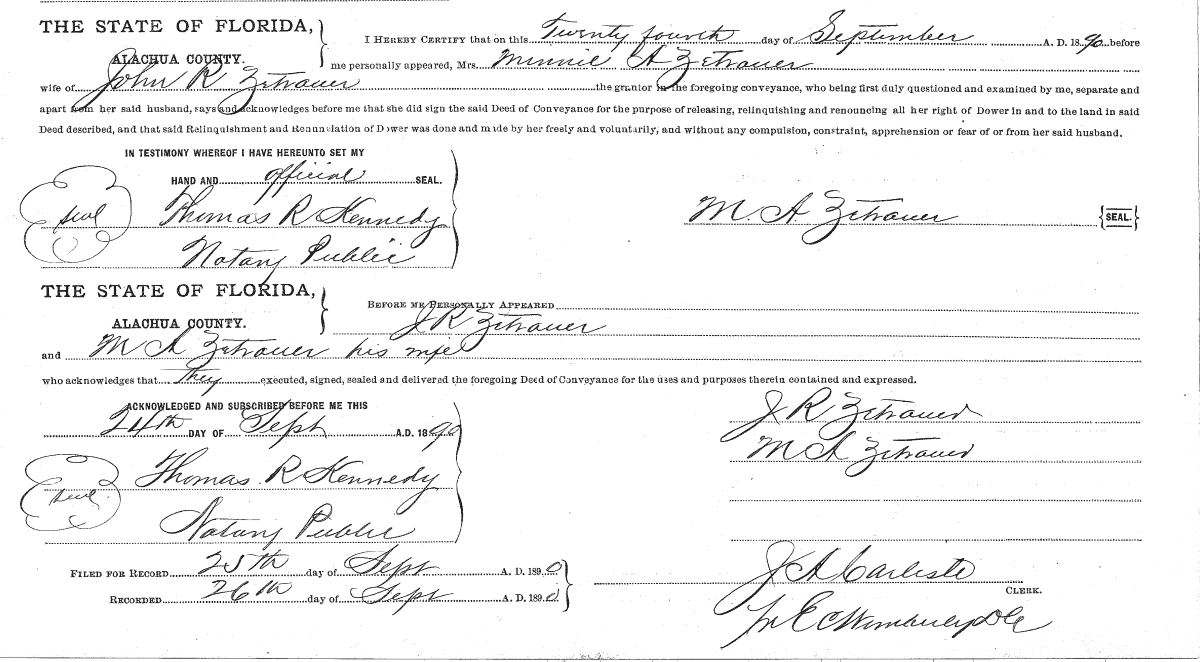 THE STATE OF FLORIDA, I HEREBY CERTIFY that on this Twenty fourth day of September A. D. 1890 before
ALACHUA COUNTY. me personally appeared, Mrs. Minnie A Zetrauer
wife of John R Zetrauer the grantor in the foregoing conveyance, who being first duly questioned and examined by me, separate and
apart from her said husband, says and acknowledges before me that she did sign the said Deed of Conveyance for the purpose of releasing, relinquishing and renouncing all her right of Dower in and to the land in said
Deed described, and that said Relinquishment and Renunciation of Dower was done and made by her freely and voluntarily, and without any compulsion, constraint, apprehension or fear of or from her said husband.
IN TESTIMONY WHEREOF I HAVE HEREUNTO SET MY
HAND AND official SEAL.
seal Thomas R Kennedy M A Zetrauer {SEAL.}
Notary Public
THE STATE OF FLORIDA, BEFORE ME PERSONALLY APPEARED
ALACHUA COUNTY. J R Zetrauer
and M A Zetrauer his wife
who acknowledges that They executed, signed, sealed and delivered the foregoing Deed of Conveyance for the uses and purposes therein contained and expressed.
ACKNOWLEDGED AND SUBSCRIBED BEFORE ME THIS J R Zetrauer
24th DAY OF Sept A.D. 1890 M A Zetrauer
seal Thomas R Kennedy
Notary Public
FILED FOR RECORD 25th day of Sept A. D. 1890 J A Carlisle
CLERK.
RECORDED 26th day of Sept A. D. 1890